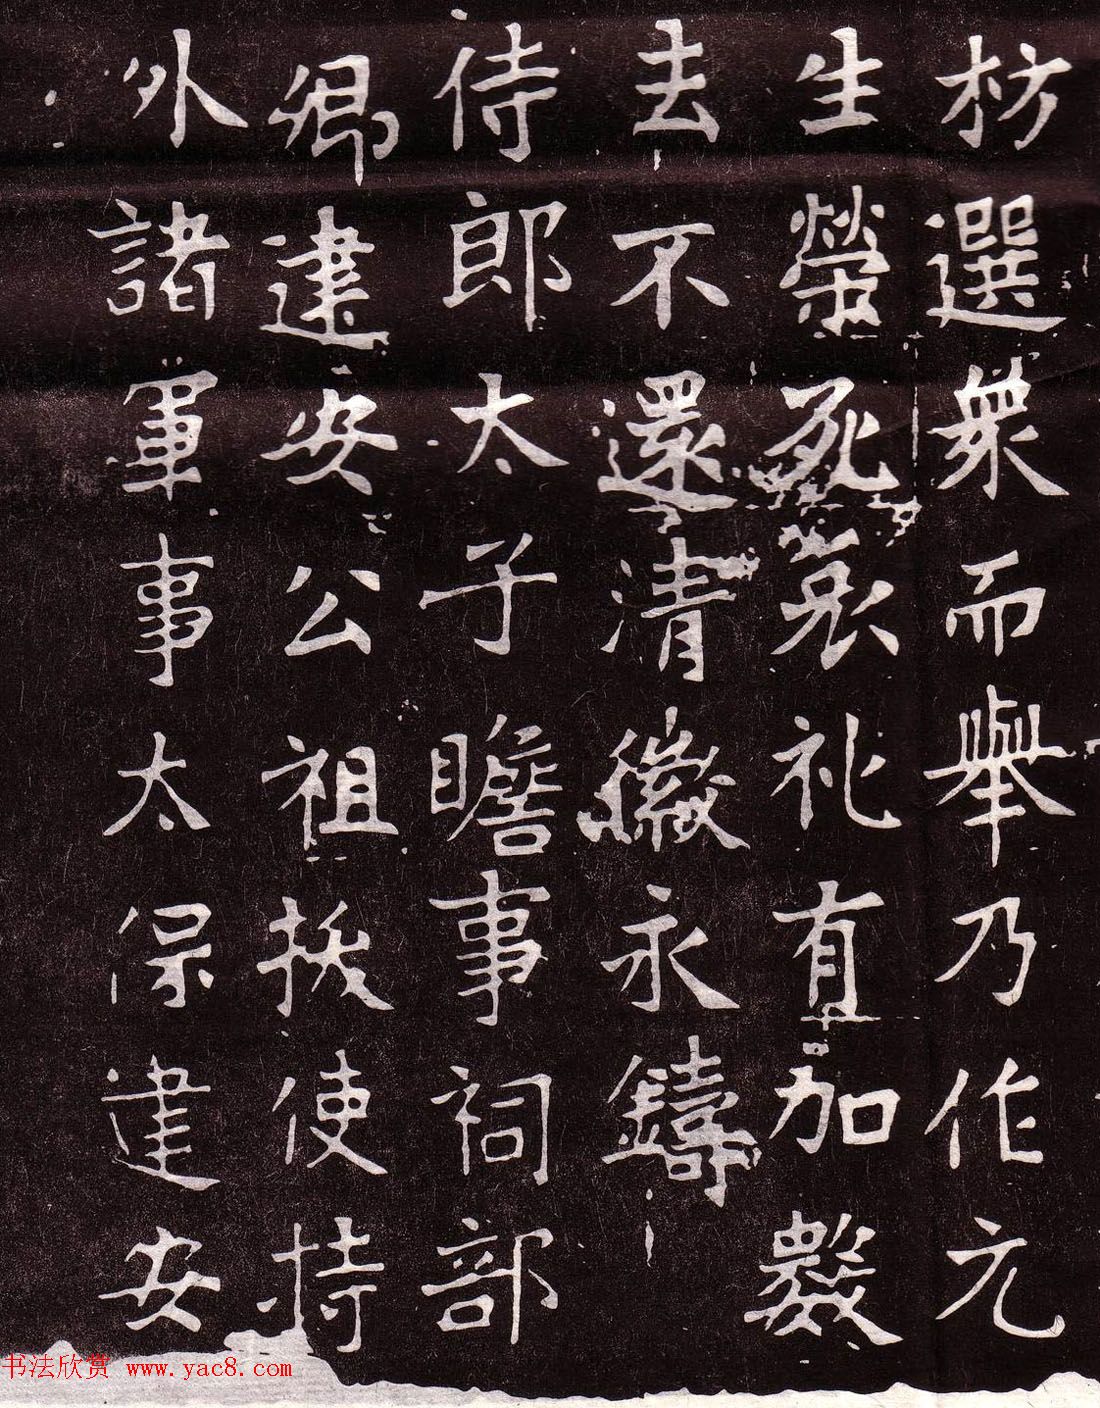 枋選衆而舉乃作元
生榮死哀礼有加數
去不還清徽永鑄
侍郎太子瞻事祠部
卿建安公祖使持
外諸軍事太保建安
书法欣赏 www.yac8.com